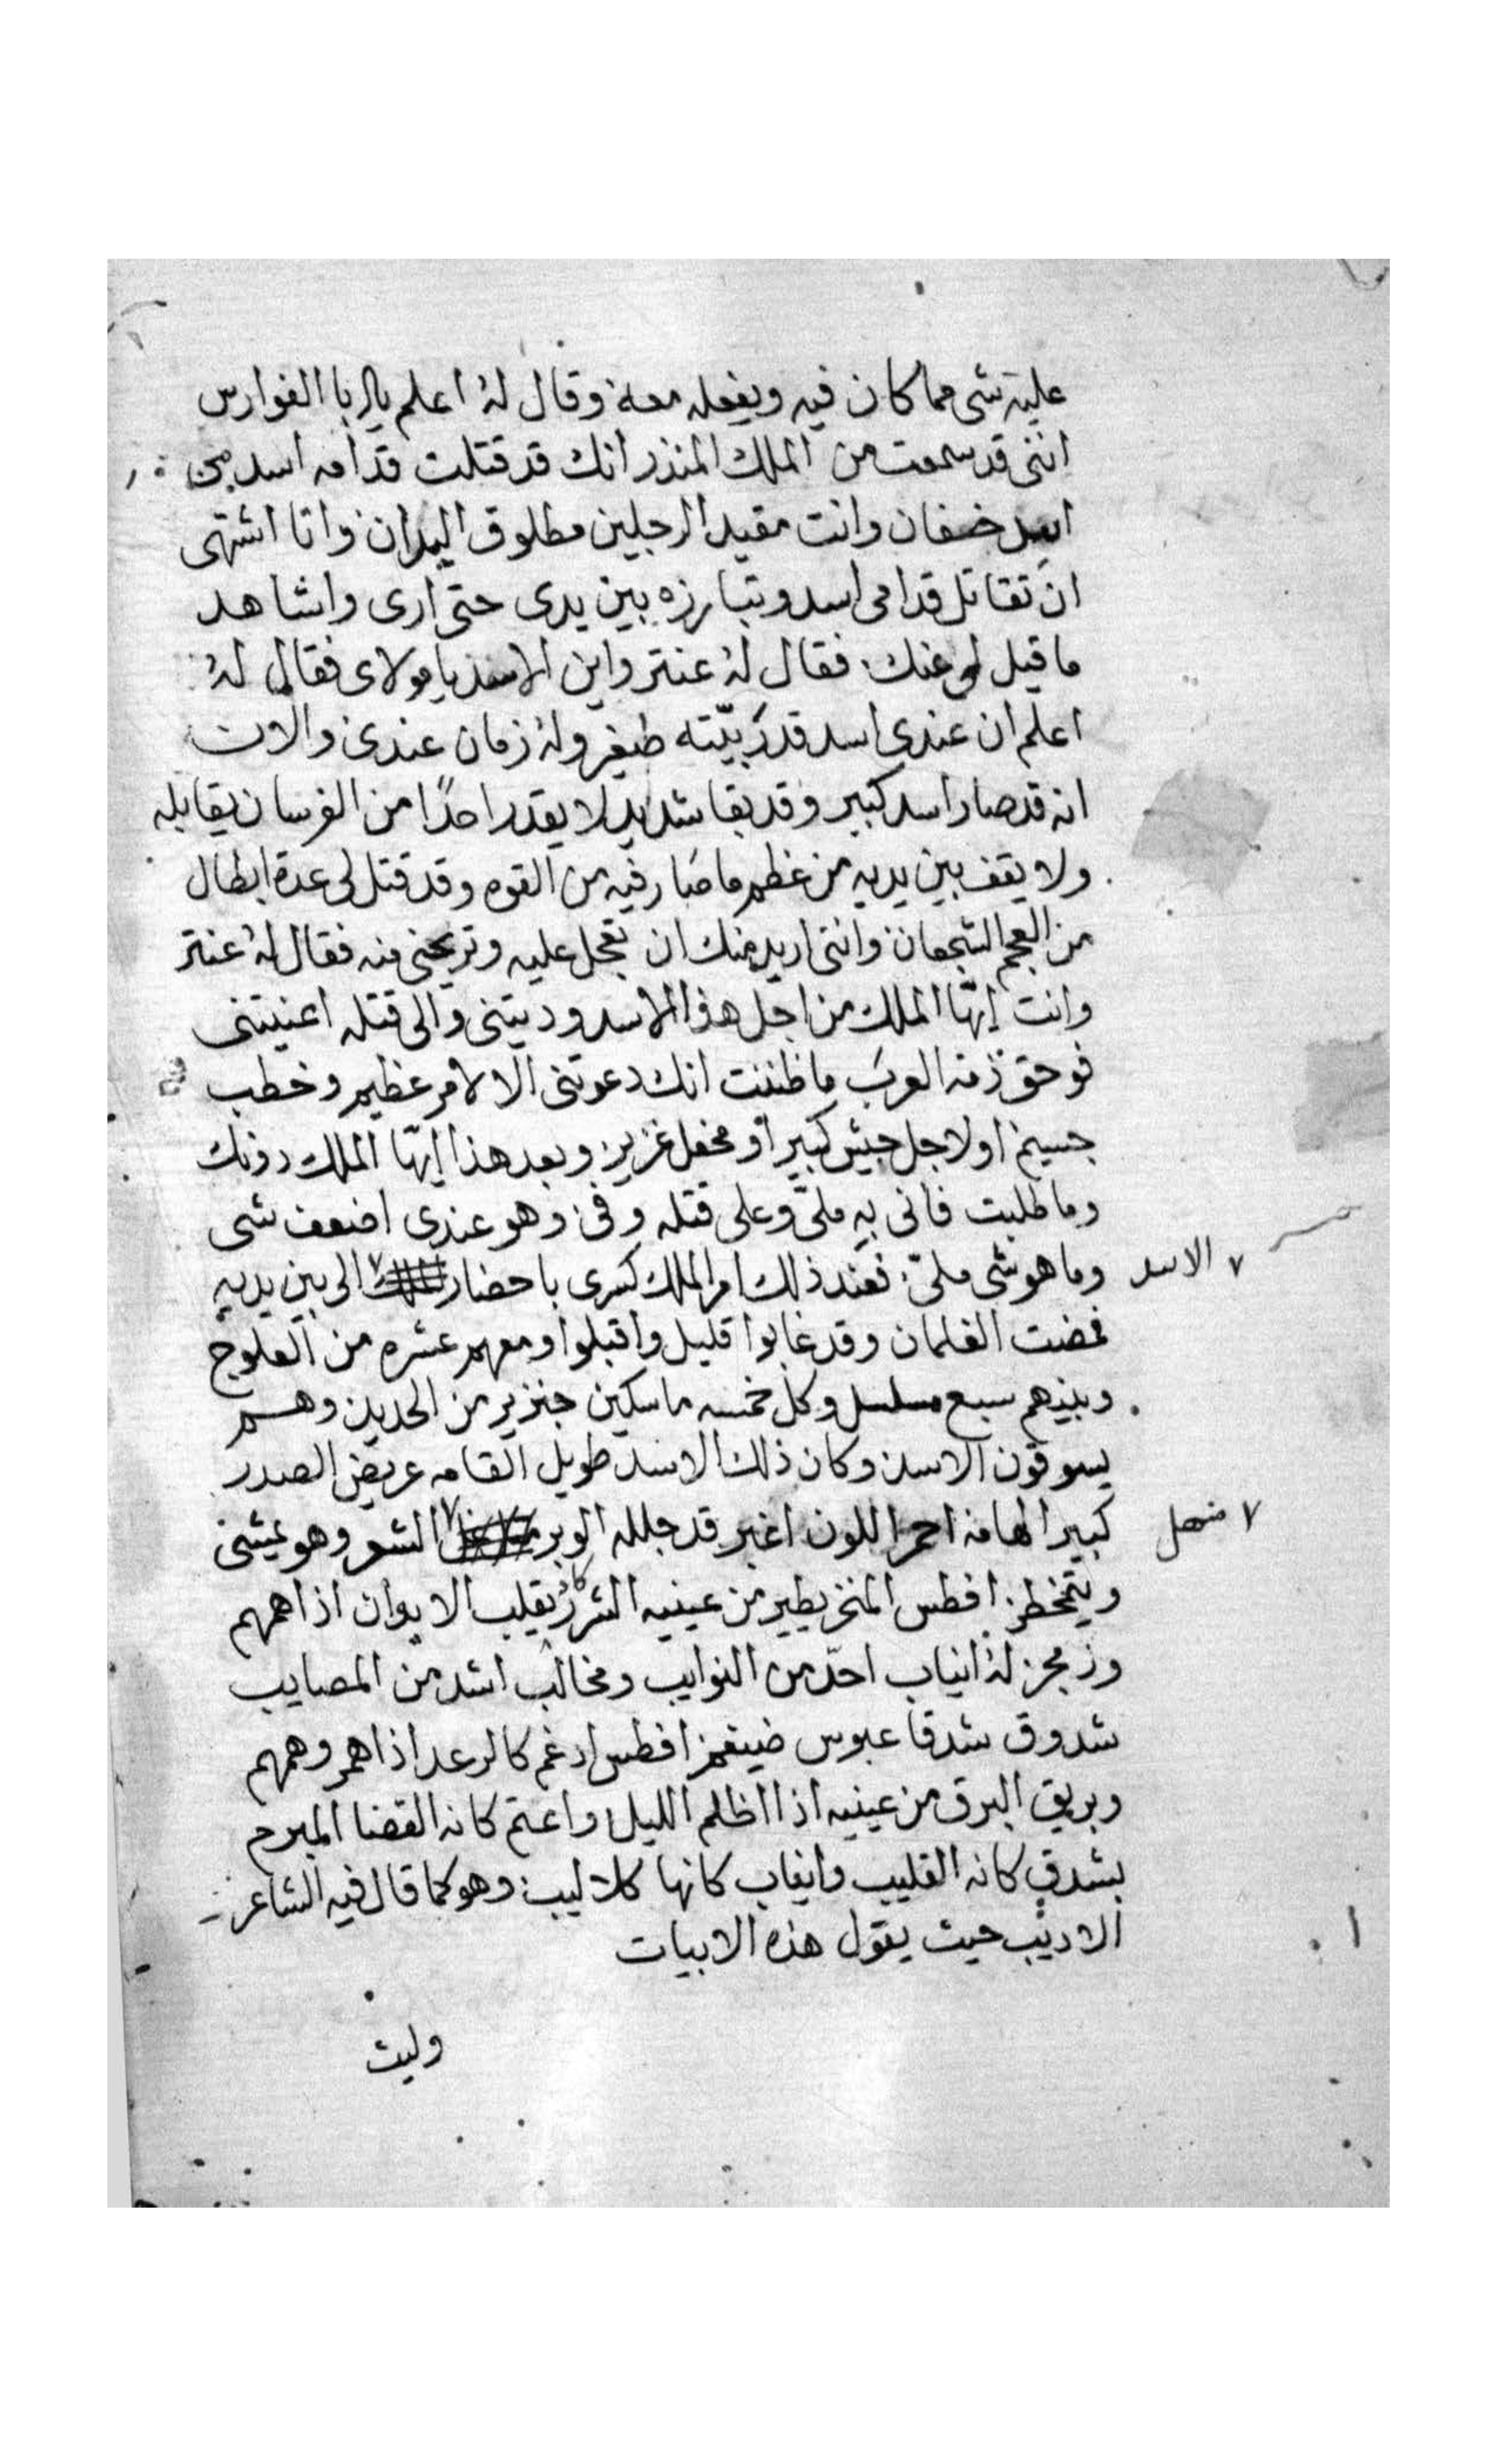 عليه شى مما كان فيه ويفعله معه وقال لهُ اعلم يا ابا الفوارس
اننى قد سمعت من الملك المنذر انك قد قتلت قدامه اسد من
اسد خفان وانت مقيد الرجلين مطلوق اليدان وانا اشتهى
ان تقاتل قدامى اسد وتبارزه بين يدى حتى ارى واشاهد
ما قيل لى عنك فقال لهُ عنتر واين الاسد يا مولاى فقال لهُ
اعلم ان عندى اسد قد ربيّته صغير ولهُ زمان عندى والان
انه قد صار اسد كبير وقد بقا شديد لا يقدر احدًا من الفرسان يقابله
ولا يقف بين يديه من عظم ما صار فيه من القوه وقد قتل لى عدة ابطال
من العجم الشجعان واننى اريد منك ان تعجل عليه وتريحنى منه فقال لهُ عنتر
وانت ايّها الملك من اجل هذا الاسد وديتنى والى قتله اعنيتنى
فوحق ذمة العرب ما ظننت انك دعوتنى الا لامر عظيم وخطب
جسيم او لاجل جيش كبير او محفل غزير وبعد هذا ايّها الملك دونك
وما طلبت فانى به ملىّ وعلى قتله وفى وهو عندى اضعف شى
وما هو شى ملىّ فعند ذلك امر الملك كسرى باحضار ٧ الى بين يديه
٧ الاسد
فمضت الغلمان وقد غابوا قليل واقبلوا ومعهم عشره من العلوج
وبيدهم سبع مسلسل وكل خمسه ماسكين جنزير من الحديد وهم
يسوقون الاسد وكان ذلك الاسد طويل القامه عريض الصدر
كبير الهامه احمر اللون اغبر قد جلله الوبر ٧ الشعر وهو يمشى
ويتخطر افطس المنخر يطير من عينيه الشرر كانهُ يقلب الايوان اذا همهم
وزمجر لهُ انياب احدّ من النوايب ومخالب اشد من المصايب
شدوق شدقا عبوس ضيغم افطس ادغم كالرعد اذا همر وهمهم
وبريق البرق من عينيه اذا اظلم الليل واعتم كانه القضا المبرم
بشدق كانه القليب وانياب كانها كلاليب وهو كما قال فيه الشاعر
الاديب حيث يقول هذه الابيات
وليث